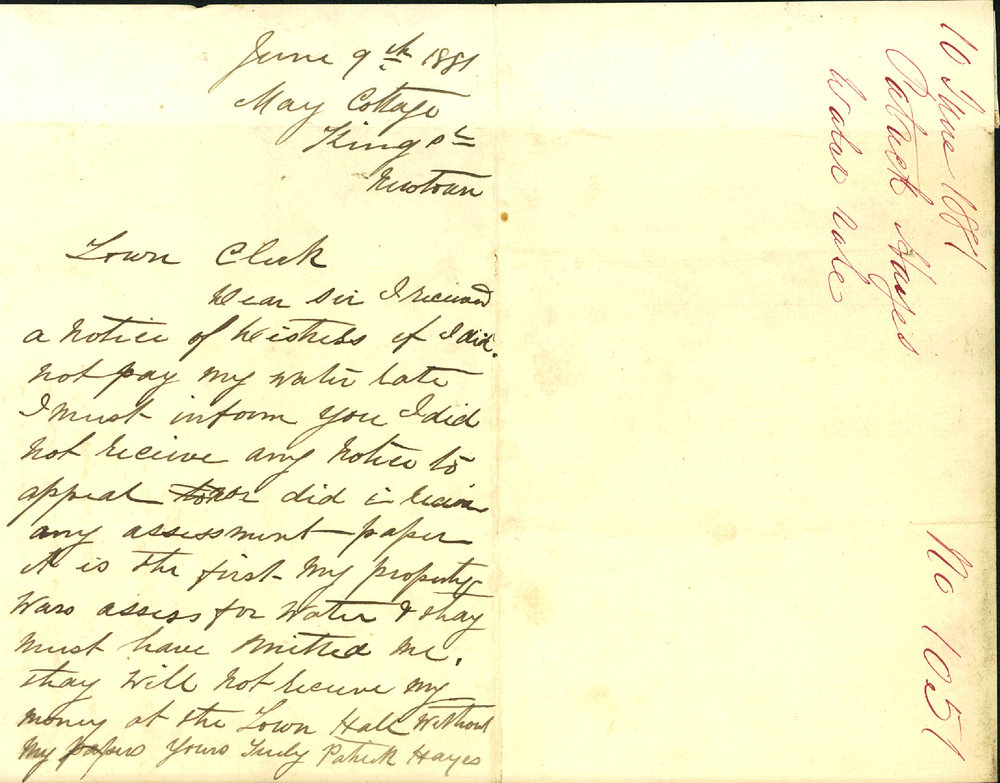 June 9th 1881
May Cottage
King St
Newtown
Town Clerk
Dear Sir I received
a notice of Distress if I did
not pay my water rate
I must inform you I did
not receive any notice to
appeal nor did i receive
any assessment paper
it is the first my property
wars assess for water & thay
must have omitted me.
thay will not receive my
money at the Town Hall without
my papers Yours Truly Patrick Hayes
10 June 1881
Patrick Hayes
Water rate
No 1051